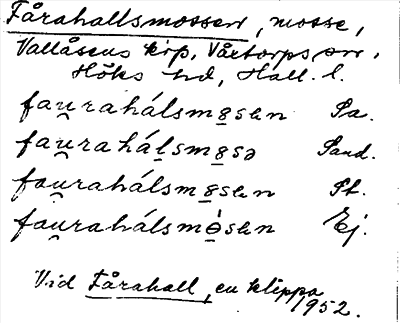 Fårahallsmossen, mosse,
Vallåsens krp, Vårtorps sn,
Höks hd, Hall. l.
fau̯rahálsmo̲sən Pa.
fau̯rahál̲smo̲sə Sand.
fau̯rahálsmo̲sən St.
fau̯rahálsmó̲sən Ej.
Vid Fårahall, en klippa
1952.